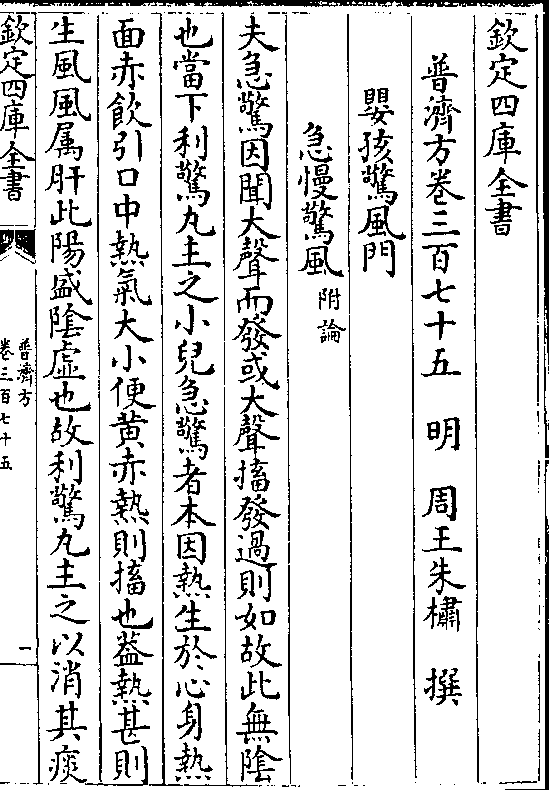 欽定四庫全書
普濟方卷三百七十五　明　周王朱橚　撰
嬰孩驚風門
急慢驚風附論
夫急驚因聞大聲而發或大聲搐發過則如故此無陰
也當下利驚丸主之小兒急驚者本因熱生於心身熱
面赤飲引口中熱氣大小便黄赤熱則搐也葢熱甚則
生風風属肝此陽盛陰虛也故利驚丸主之以消其痰
欽定四庫全書
普濟方
卷三百七十五
一